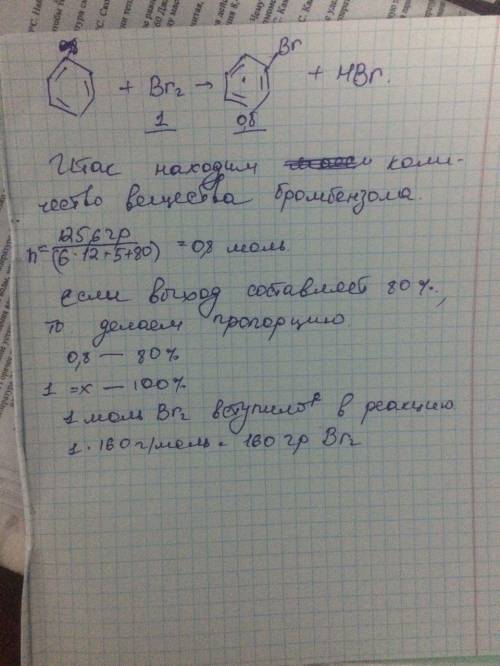 Br
+ Br₂ → + HBr.
1 0,8
Итас находим коли-
чество вещества бромбензола.
n = 125,6 гр / (6·12+5+80) = 0,8 моль
если выход составляет 80%,
то делаем пропорцию
0,8 — 80%
1 = x — 100%
1 моль Br₂ вступило в реакцию
1·160 г/моль = 160 гр Br₂